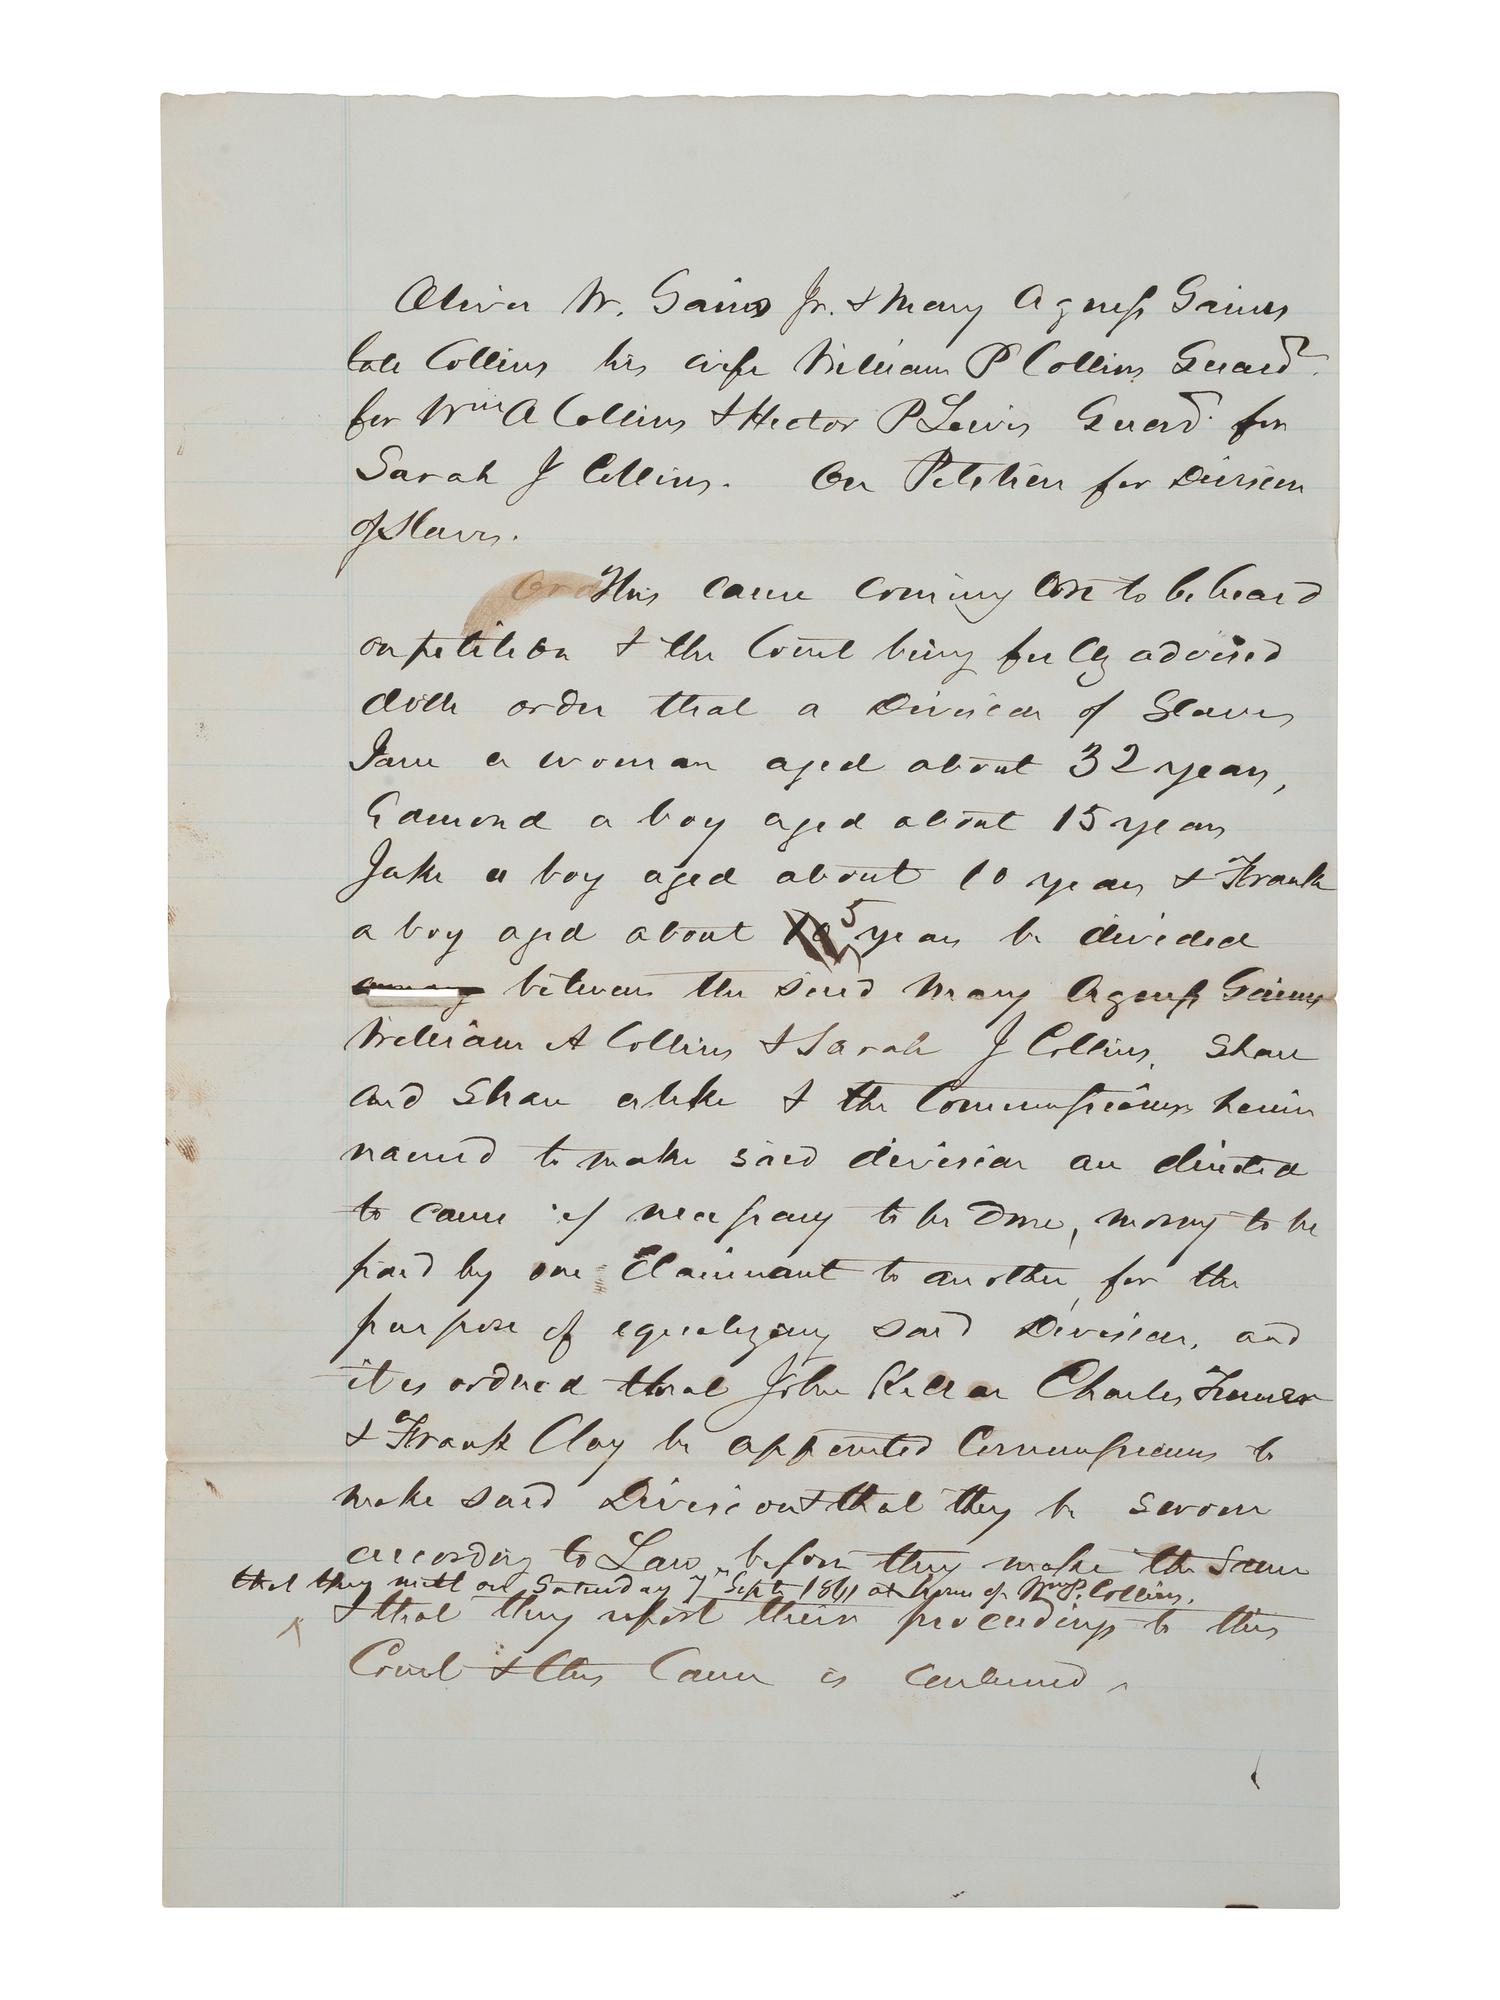 Oliver W. Gaines Jr. & Mary Agness Gaines
late Collins his wife William P Collins Guardn.
for Wm A Collins & Hector P Lewis Guard. for
Sarah J Collins. On Petition for Division
of Slaves.
This cause coming on to be heard
on petition & the Court being fully advised
doth order that a Division of Slaves
Jane a woman aged about 32 years,
Edmond a boy aged about 15 years
Jake a boy aged about 10 years & Frank
a boy aged about 5 years be divided
among between the said Mary Agness Gaines
William A Collins & Sarah J Collins, Share
and Share alike & the Commissioners herein
named to make said division are directed
to cause if necessary to be done, money to be
paid by one Claimant to another, for the
purpose of equalizing said Division, and
it is ordered that John Kellar Charles Turner
& Frank Clay be appointed Commissioners to
make said Division & that they be sworn
according to Law, before they make the same
that they meet on Saturday 7th Sept 1861 at home of Wm P. Collins.
& that they report their proceedings to this
Court & this Cause is continued